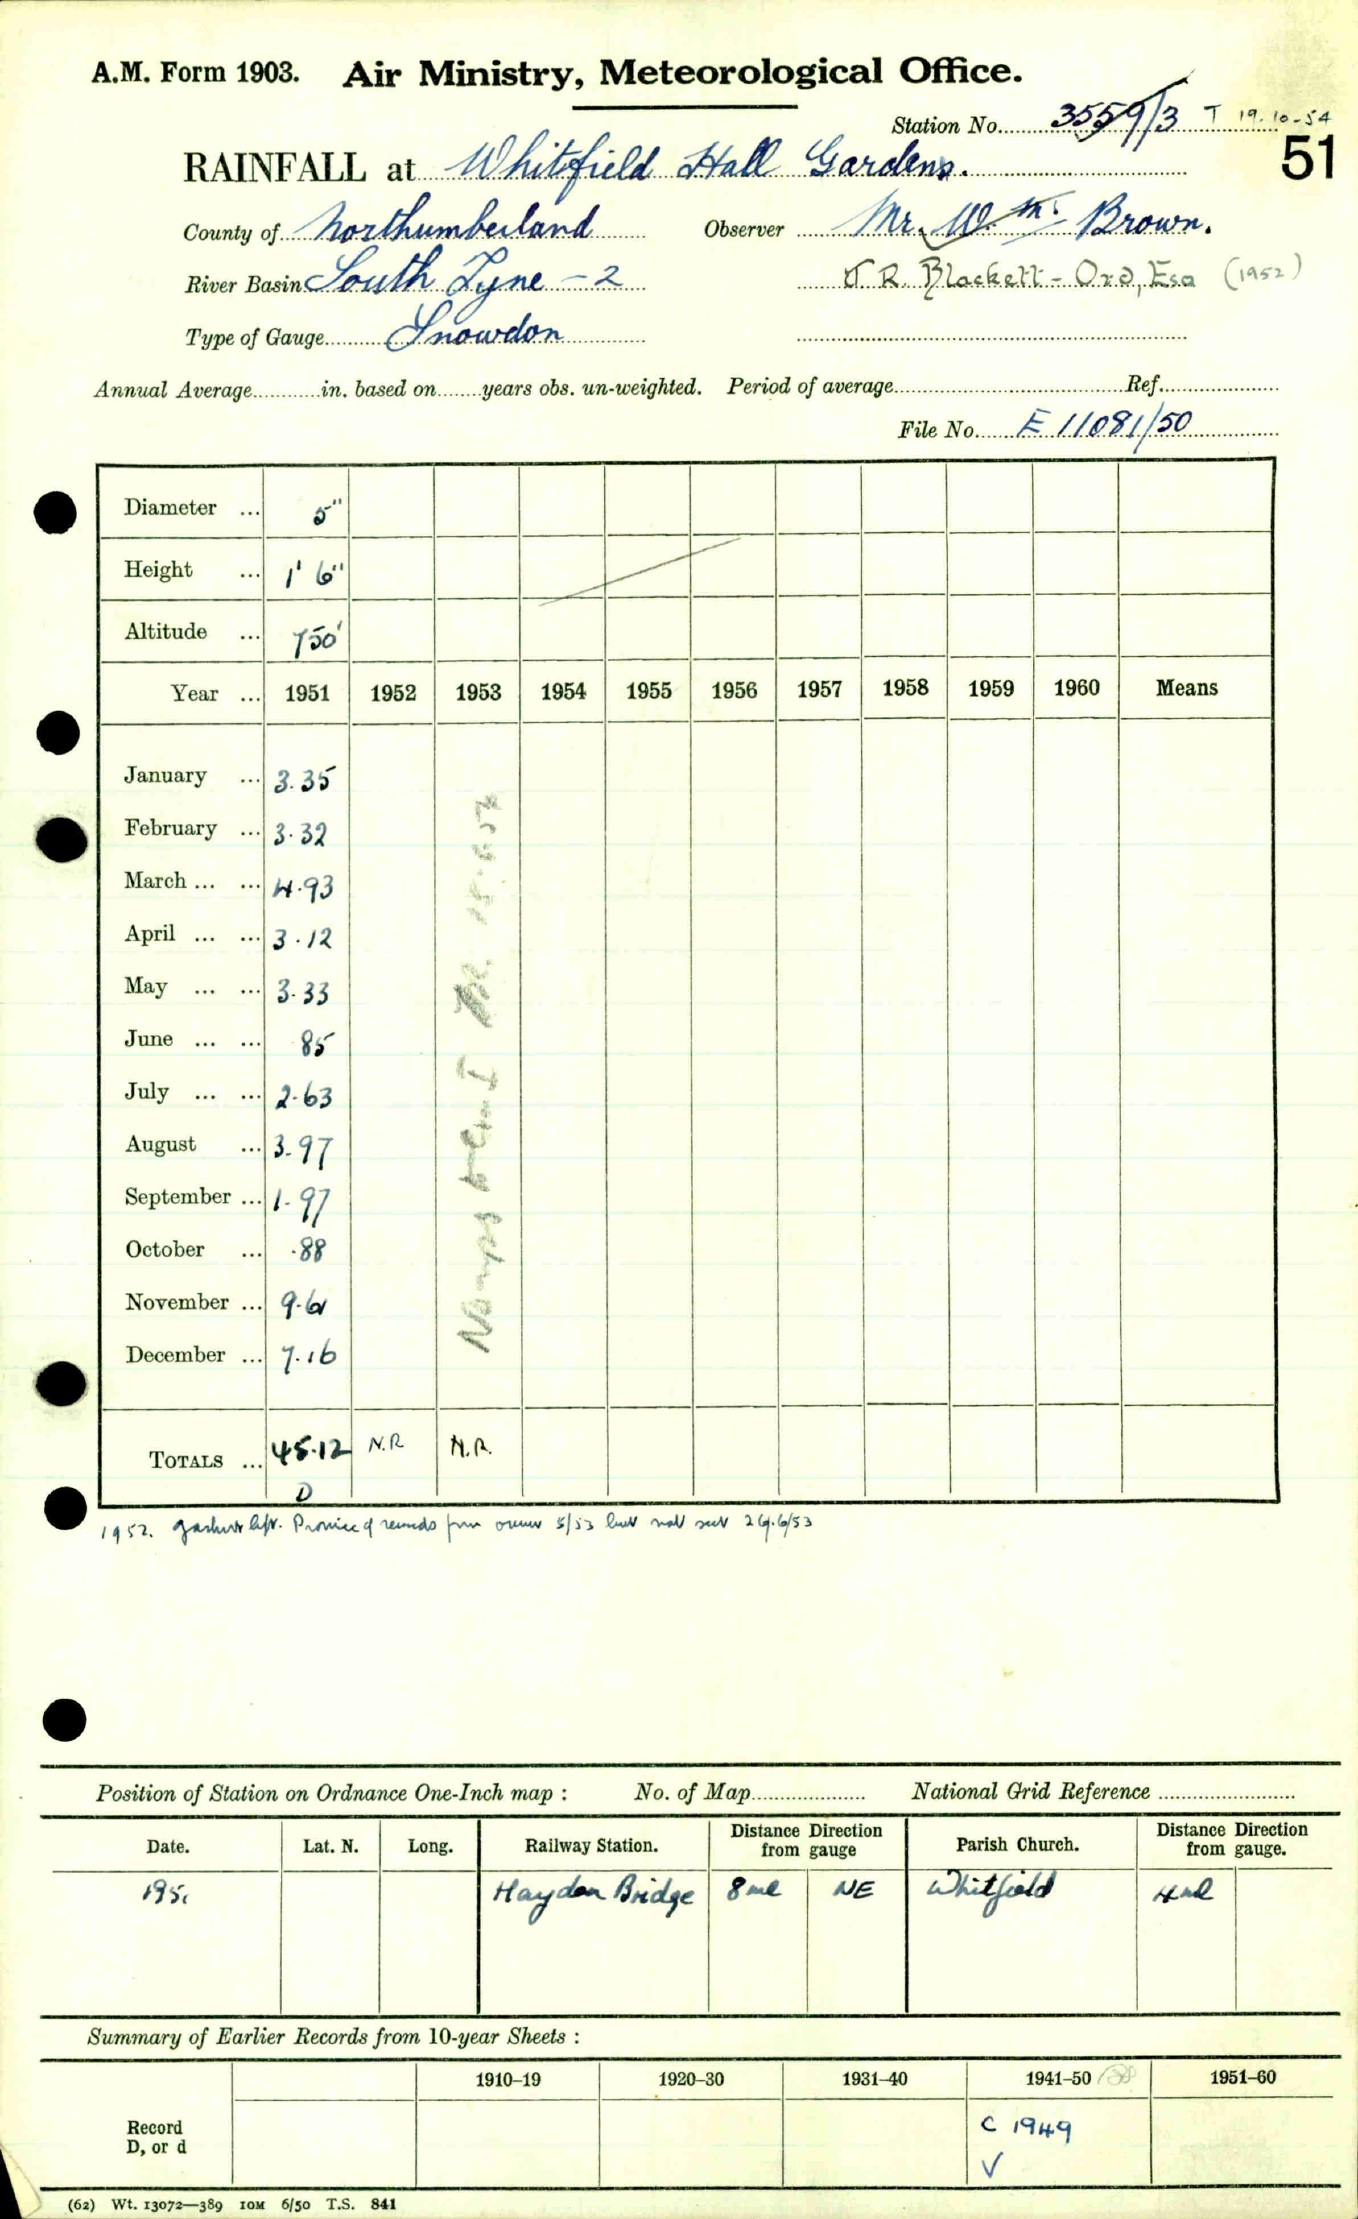 A.M. Form 1903. Air Ministry, Meteorological Office.
Station No. 3559/3 T 19.10-54
51
RAINFALL at Whitfield Hall Gardens.
County of Northumberland Observer Mr. Wm. Brown.
River Basin South Tyne - 2 J. R. Blackett-Ord, Esq (1952)
Type of Gauge Snowdon
Annual Average in. based on years obs. un-weighted. Period of average Ref.
File No. E 11081/50
Diameter ... 5"
Height ... 1' 6"
Altitude ... 750'
Year ... 1951 1952 1953 1954 1955 1956 1957 1958 1959 1960 Means
January ... 3.35
February ... 3.32
March ... ... 4.93
April ... ... 3.12
May ... ... 3.33
June ... ... 85
July ... ... 2.63
August ... 3.97
September ... 1.97
October ... .88
November ... 9.61
December ... 7.16
TOTALS ... 45.12 N.R N.R.
D
1952. gardener left. Promise of records from owner 5/53 but not sent 29.6/53
Position of Station on Ordnance One-Inch map : No. of Map National Grid Reference
Date. Lat. N. Long. Railway Station. Distance Direction from gauge Parish Church. Distance Direction from gauge.
1951 Haydon Bridge 8 ml NE Whitfield 4 ml
Summary of Earlier Records from 10-year Sheets :
1910–19 1920–30 1931–40 1941–50 1951–60
Record D, or d C 1949
V
(62) Wt. 13072—389 10M 6/50 T.S. 841